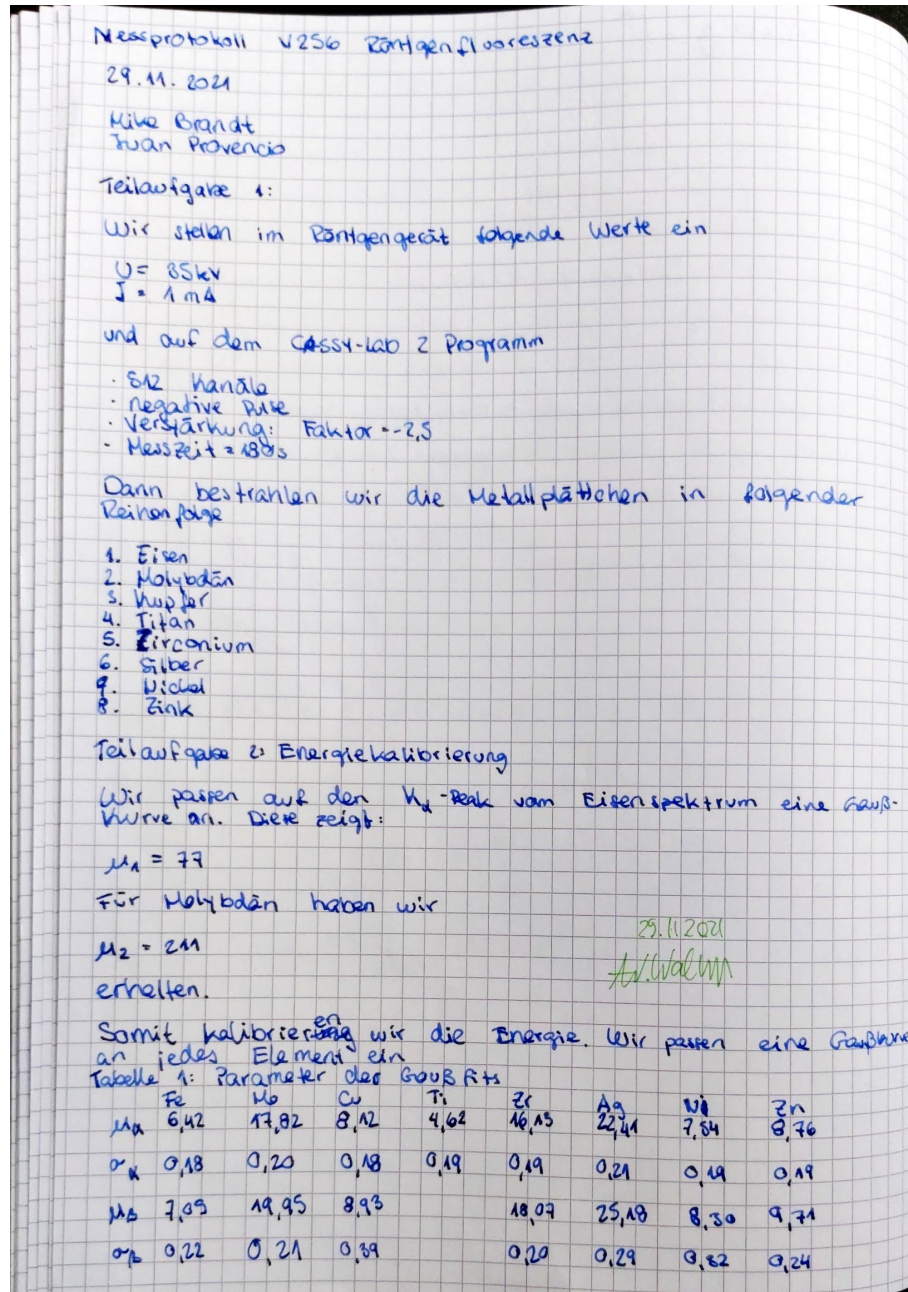 Messprotokoll V256 Röntgenfluoreszenz
29.11.2021
Mike Brandt
Juan Provencio
Teilaufgabe 1:
Wir stellen im Röntgengerät folgende Werte ein
U = 35kV
I = 1 mA
und auf dem CASSY-Lab 2 Programm
· 512 Kanäle
· negative Pulse
· Verstärkung: Faktor = -2,5
· Messzeit = 180s
Dann bestrahlen wir die Metallplättchen in folgender
Reihenfolge
1. Eisen
2. Molybdän
3. Kupfer
4. Titan
5. Zirconium
6. Silber
7. Nickel
8. Zink
Teilaufgabe 2: Energiekalibrierung
Wir passen auf den Kα-Peak vom Eisenspektrum eine Gauß-
Kurve an. Diese zeigt:
μ1 = 77
Für Molybdän haben wir
μ2 = 211
29.11.2021
erhalten.
Somit kalibrieren wir die Energie. Wir passen eine Gaußkurve
an jedes Element ein
Tabelle 1: Parameter der Gauß Fits
Fe Mo Cu Ti Zr Ag Ni Zn
μα 6,42 17,82 8,12 4,62 16,13 22,41 7,54 8,76
σα 0,18 0,20 0,18 0,19 0,19 0,21 0,19 0,19
μβ 7,05 19,95 8,93 18,07 25,18 8,30 9,71
σβ 0,22 0,21 0,39 0,20 0,29 0,32 0,24